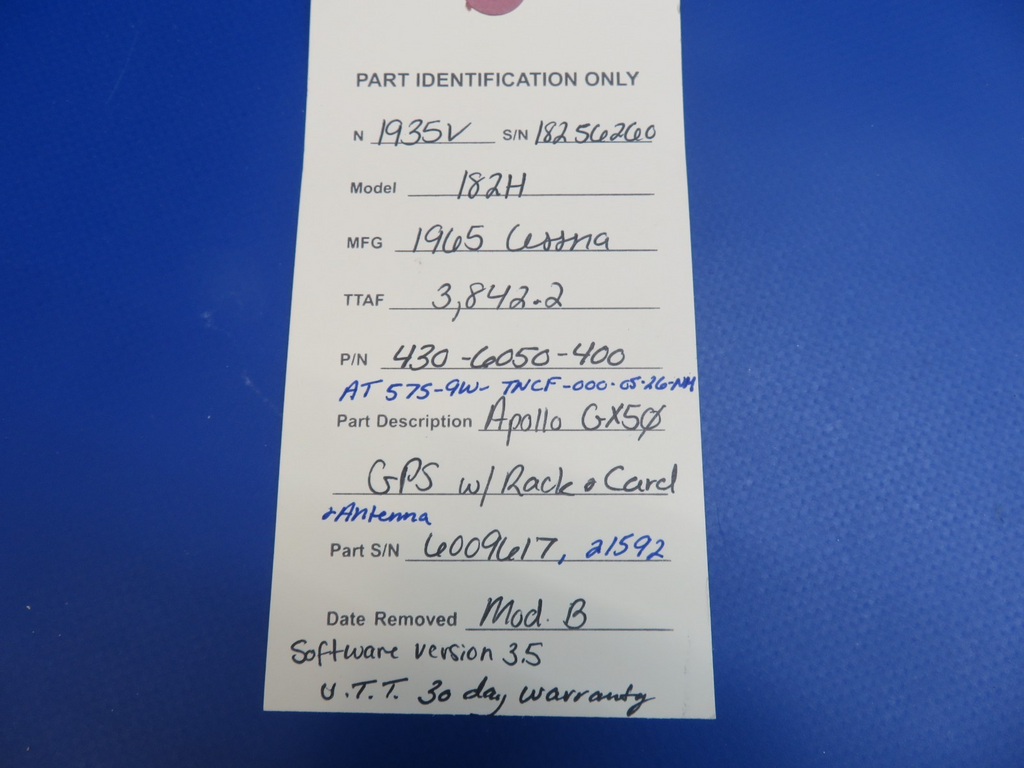 PART IDENTIFICATION ONLY
N 1935V S/N 18256260
Model 182H
MFG 1965 Cessna
TTAF 3,842.2
P/N 430-6050-400
AT 575-9W- TNCF-000-05-26-NM
Part Description Apollo GX5Ø
GPS w/ Rack & Card
+Antenna
Part S/N 6009617, 21592
Date Removed Mod. B
Software version 3.5
U.T.T. 30 day warranty